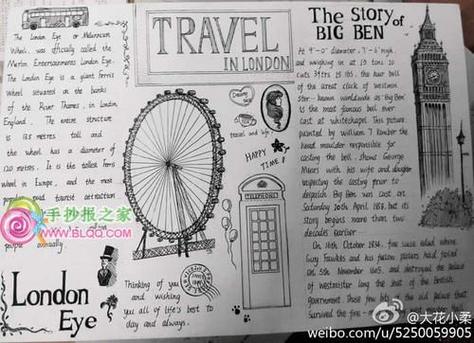 The London Eye or Millennium
Wheel, was officially called the
Merlin Entertainments London Eye.
The London Eye is a giant ferris
Wheel situated on the banks
of the River Thames, in London,
England. The entire structure
is 135 metres tall and
the wheel has a diameter of
120 metres. It is the tallest ferris
wheel in Europe, and the most
paid tourist attraction
people annually.
London
Eye
TRAVEL
IN LONDON
travel and life!
HAPPY
TIME!
TELEPHONE
Thinking of you
and wishing
you all of life's best to
day and always.
The Story of
BIG BEN
At 9'-0" diameter, 7'-6" high,
and weighing in at 13 tons 10
cwts 3qtrs 15 lbs, the hour bell
of the great clock of westmin
ster - known worldwide as 'Big Ben'
is the most famous bell ever
cast at whitechapel. This picture,
painted by william T Kimber the
head moulder responsible for
casting the bell, shows George
Mears with his wife and daughter
inspecting the casting prior to
despatch. Big Ben was cast on
Saturday 10th April 1858, but its
story begins more than two
decades earlier
On 16th October 1834, fire
Guy Fawkes and his fellow plotters had failed
on 5th November 1605, and destroyed the palace
of westminster long the seat of the British
government. Those few in the old palace that
Survived the fire
手抄报之家
WWW.BLQQ.COM
@大花小柔
weibo.com/u/5250059905